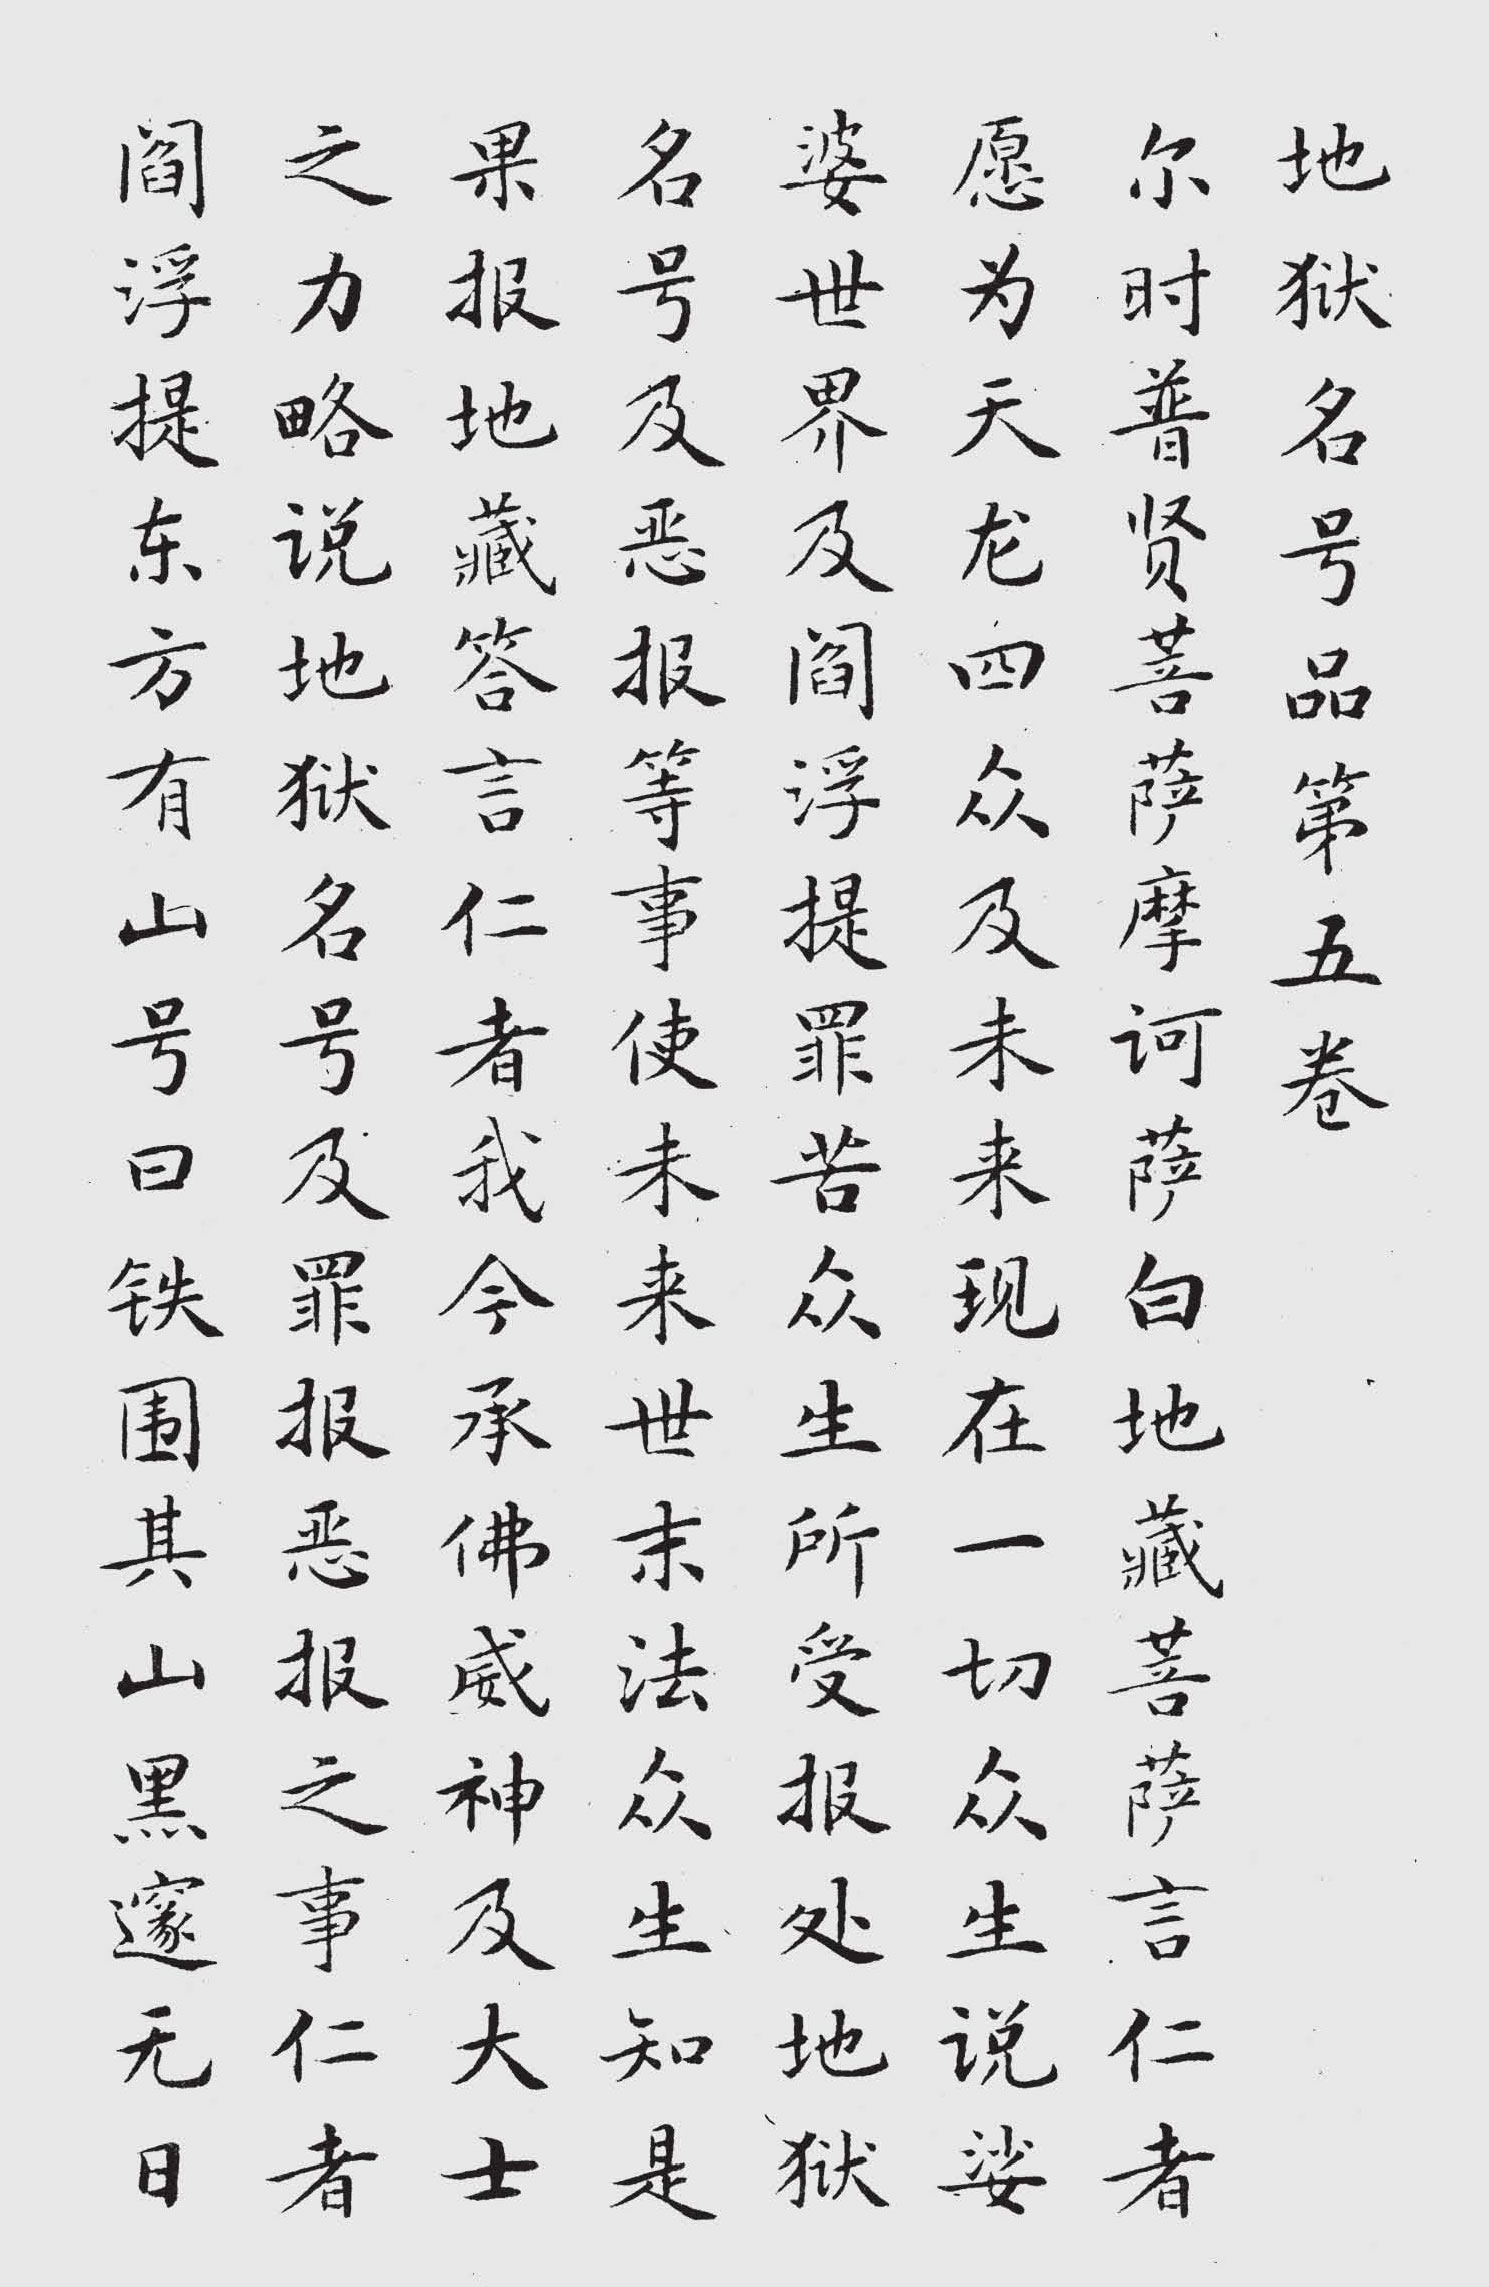 地狱名号品第五卷
尔时普贤菩萨摩诃萨白地藏菩萨言仁者
愿为天龙四众及未来现在一切众生说娑
婆世界及阎浮提罪苦众生所受报处地狱
名号及恶报等事使未来世末法众生知是
果报地藏答言仁者我今承佛威神及大士
之力略说地狱名号及罪报恶报之事仁者
阎浮提东方有山号曰铁围其山黑邃无日